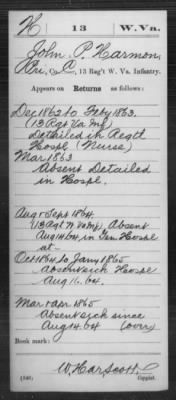 H 13 W. Va.
John P. Harmon,
Pri, Co. C, 13 Reg't W. Va. Infantry.
Appears on Returns as follows:
Dec 1862 to Feby 1863.
(13 Rgt Va Inf)
Detailed in Regtl
Hospl (Nurse)
Mar 1863
Absent Detailed
in Hospl.
Aug & Sept 1864.
(13 Rgt W Va Inf) Absent
Aug 14 64 in Gen Hospl
at —
Oct 1864 to Jany 1865
Absent sick Hospl
Aug 16. 64.
Mar & Apr 1865
Absent sick since
Aug 14 64 (over)
Book mark:
W Har Scott
(546) Copyist.